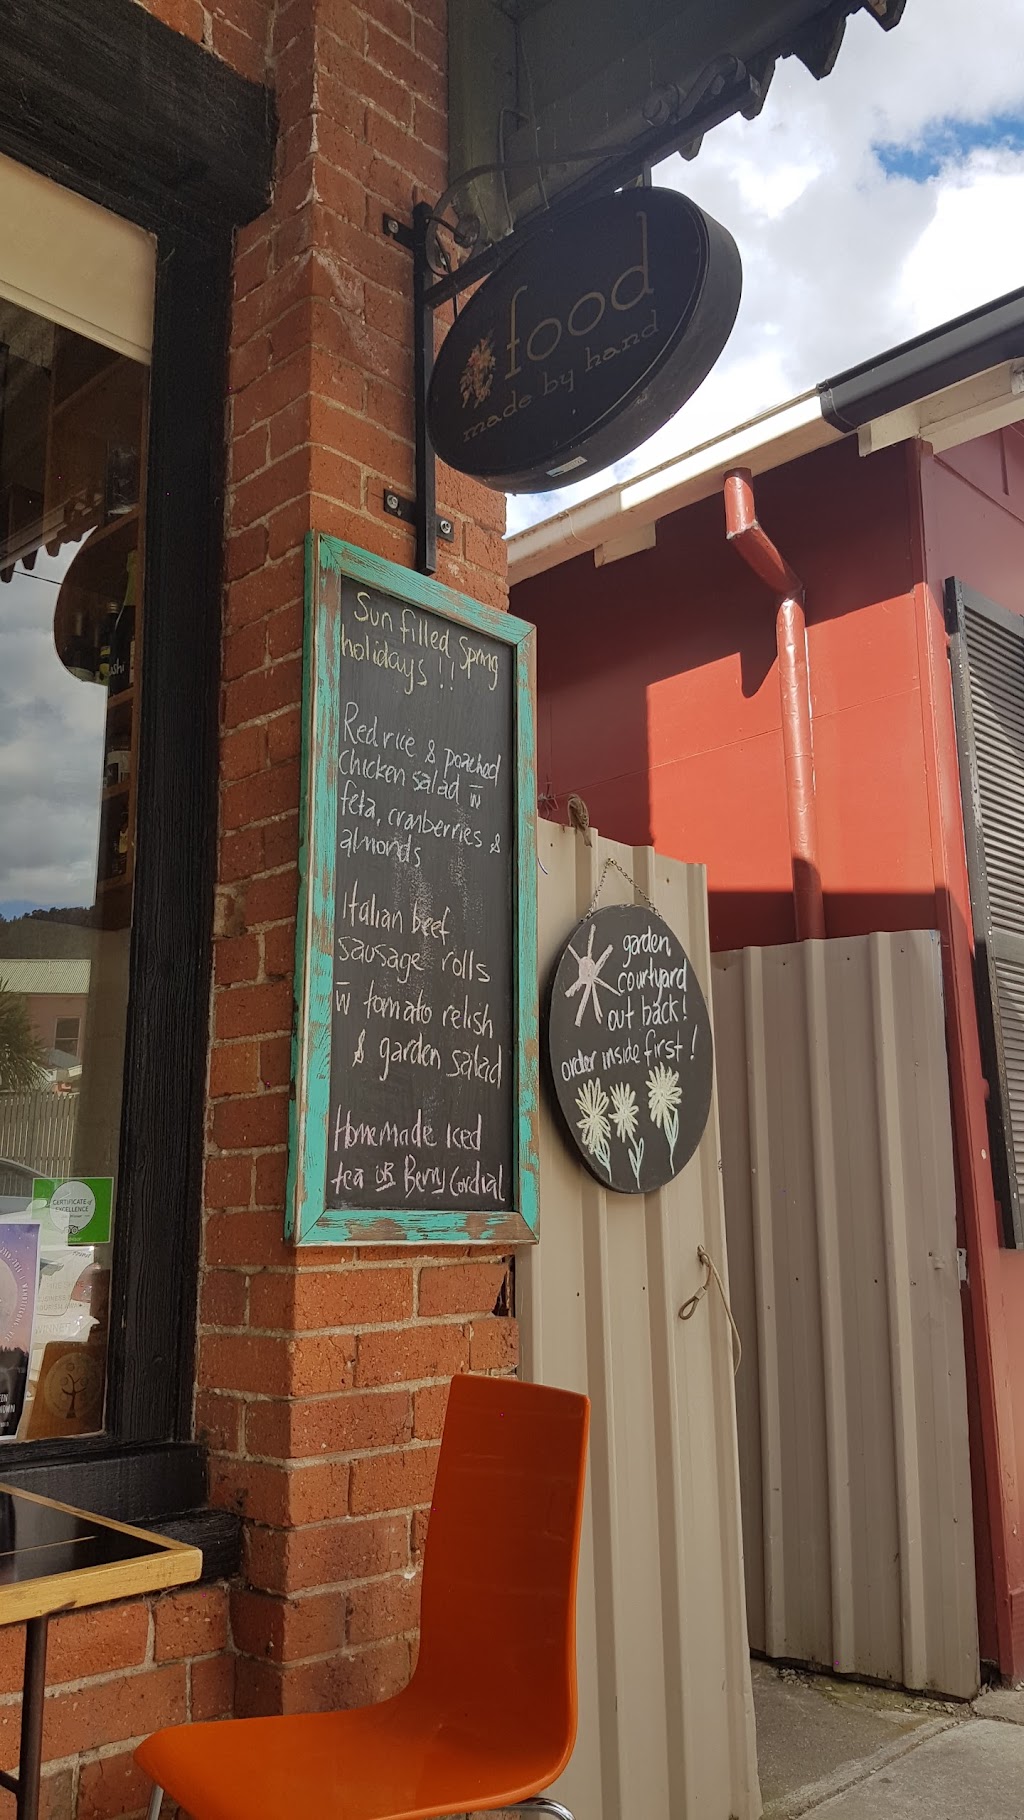 food
made by hand
Sun filled Spring
holidays !!
Red rice & poached
chicken salad w̄
feta, cranberries &
almonds
Italian beef
sausage rolls
w̄ tomato relish
& garden salad
Homemade Iced
tea OR Berry Cordial
garden
courtyard
out back!
order inside first!
CERTIFICATE of
EXCELLENCE